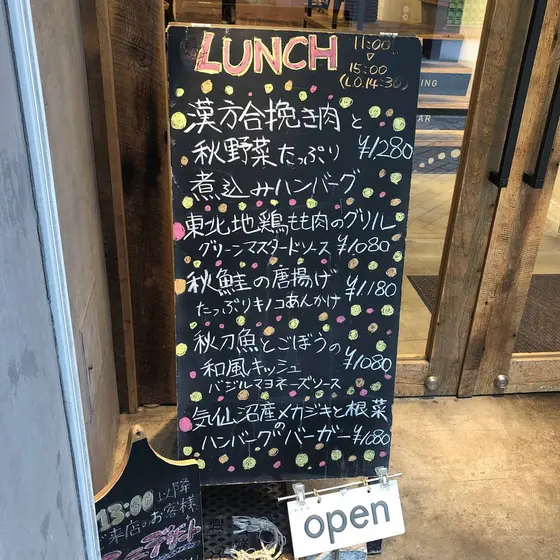 LUNCH
11:00
▽
15:00
(L.O.14:30)
漢方合挽き肉と
秋野菜たっぷり ¥1,280
煮込みハンバーグ
東北地鶏もも肉のグリル
グリーンマスタードソース ¥1,080
秋鮭の唐揚げ ¥1,180
たっぷりキノコあんかけ
秋刀魚とごぼうの
和風キッシュ ¥1,080
バジルマヨネーズソース
気仙沼産メカジキと根菜
のハンバーグバーガー ¥1,080
13:00以降
ご来店のお客様
open